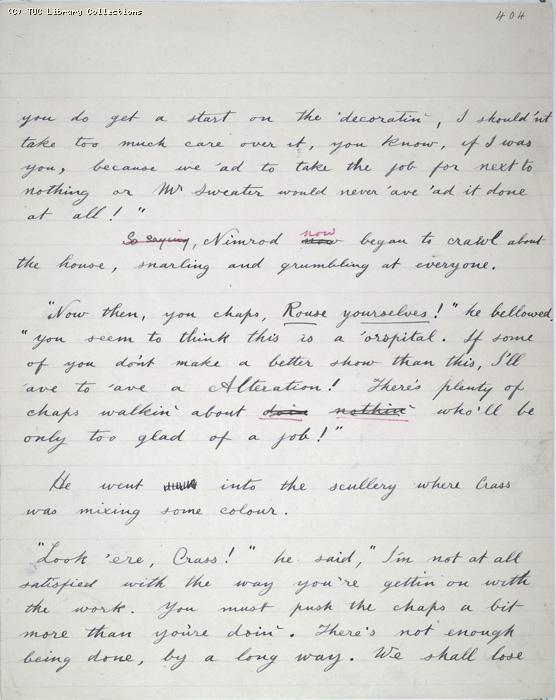 (C) TUC Library Collections
404
you do get a start on the 'decoratin', I should'nt
take too much care over it, you know, if I was
you, because we 'ad to take the job for next to
nothing or Mr Sweater would never 'ave 'ad it done
at all!"
So saying, Nimrod now now began to crawl about
the house, snarling and grumbling at everyone.
"Now then, you chaps, Rouse yourselves!" he bellowed.
"you seem to think this is a 'orspital. If some
of you don't make a better show than this, I'll
'ave to 'ave a Alteration! There's plenty of
chaps walkin' about doin nothin' who'll be
only too glad of a job!"
He went into the scullery where Crass
was mixing some colour.
"Look 'ere, Crass!" he said, "I'm not at all
satisfied with the way you're gettin on with
the work. You must push the chaps a bit
more than you're doin'. There's not enough
being done, by a long way. We shall lose